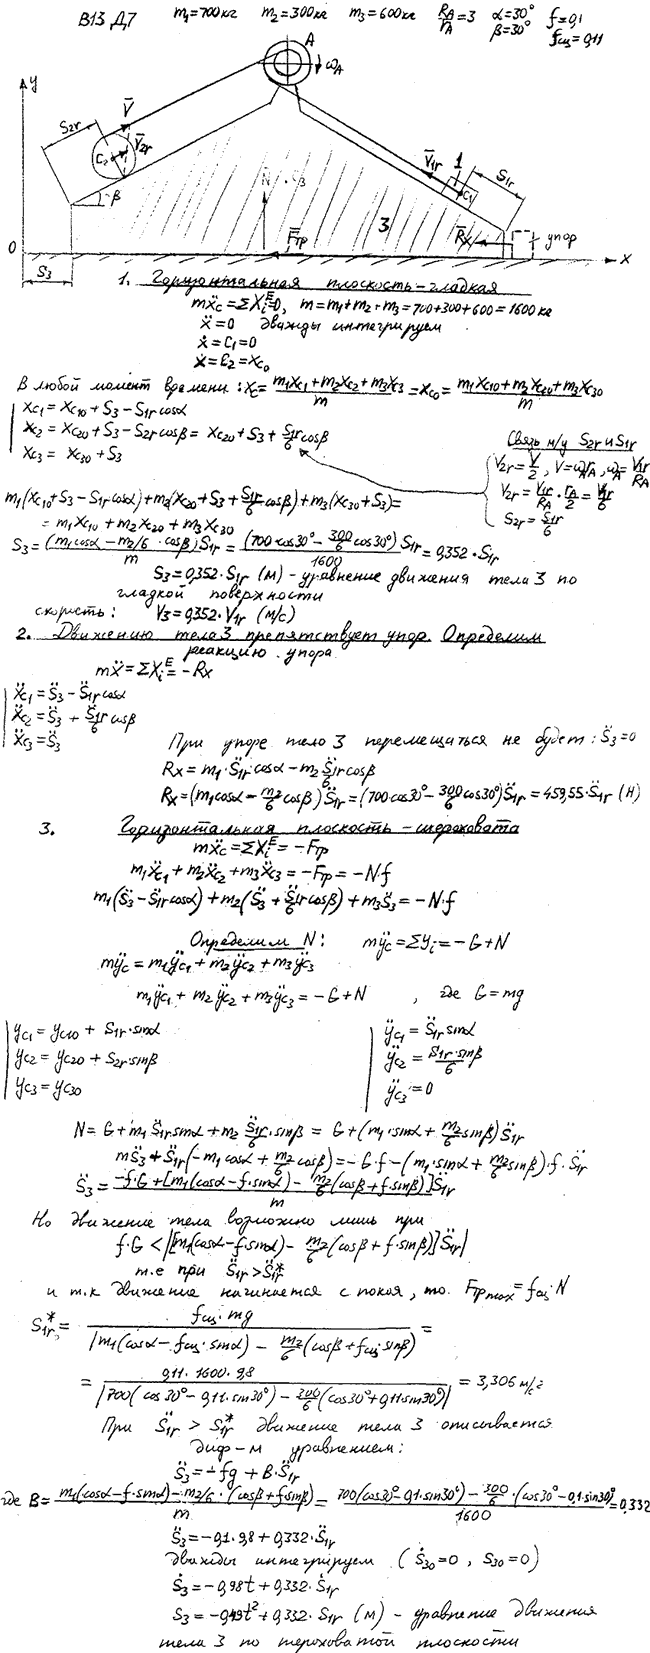 В13 Д7 m₁=700кг m₂=300кг m₃=600кг R_A/r_A=3 α=30° f=0,1
β=30° f_сц=0,11
A
ω_A
y
S₂r
V̄
V̄₂r
C₂
β
V̄₁r
1
S₁r
C₁
N̄ C₃
3
R̄x
упор
F̄тр
0
x
S₃
1. Горизонтальная плоскость-гладкая
mẍc=ΣXᵢᴱ=0, m=m₁+m₂+m₃=700+300+600=1600 кг
ẍ=0 дважды интегрируем
ẋ=C₁=0
x=C₂=xc₀
В любой момент времени: xc=(m₁xc₁+m₂xc₂+m₃xc₃)/m=xc₀=(m₁xc₁₀+m₂xc₂₀+m₃xc₃₀)/m
xc₁=xc₁₀+S₃-S₁r cosα
x₂=xc₂₀+S₃-S₂r cosβ=xc₂₀+S₃+S₁r/6 cosβ
xc₃=xc₃₀+S₃
Связь м/у S₂r и S₁r
V₂r=V/2, V=ω_A r_A, ω_A=V₁r/R_A
V₂r=V₁r/R_A·r_A/2=V₁r/6
S₂r=S₁r/6
m₁(xc₁₀+S₃-S₁r cosα)+m₂(xc₂₀+S₃+S₁r/6 cosβ)+m₃(xc₃₀+S₃)=
=m₁xc₁₀+m₂xc₂₀+m₃xc₃₀
S₃=(m₁cosα-m₂/6·cosβ)S₁r/m=(700cos30°-300/6 cos30°)/1600 S₁r=0,352·S₁r
S₃=0,352·S₁r (м) - уравнение движения тела 3 по
гладкой поверхности
скорость: V₃=0,352·V₁r (м/с)
2. Движению тела 3 препятствует упор. Определим
реакцию упора
mẍ=ΣXᵢᴱ=-Rx
ẍc₁=S̈₃-S̈₁r cosα
ẍc₂=S̈₃+S̈₁r/6 cosβ
ẍc₃=S̈₃
При упоре тело 3 перемещаться не будет: S̈₃=0
Rx=m₁·S̈₁r·cosα-m₂ S̈₁r/6 cosβ
Rx=(m₁cosα-m₂/6 cosβ)S̈₁r=(700cos30°-300/6 cos30°)S̈₁r=459,55·S̈₁r (Н)
3. Горизонтальная плоскость-шероховата
mẍc=ΣXᵢᴱ=-Fтр
m₁ẍc₁+m₂ẍc₂+m₃ẍc₃=-Fтр=-N·f
m₁(S̈₃-S̈₁r cosα)+m₂(S̈₃+S̈₁r/6 cosβ)+m₃S̈₃=-N·f
Определим N: mÿc=Σyᵢ=-G+N
mÿc=m₁ÿc₁+m₂ÿc₂+m₃ÿc₃
m₁ÿc₁+m₂ÿc₂+m₃ÿc₃=-G+N, где G=mg
yc₁=yc₁₀+S₁r·sinα
yc₂=yc₂₀+S₂r·sinβ
yc₃=yc₃₀
ÿc₁=S̈₁r sinα
ÿc₂=S̈₁r·sinβ/6
ÿc₃=0
N=G+m₁S̈₁r sinα+m₂ S̈₁r/6·sinβ=G+(m₁·sinα+m₂/6 sinβ)S̈₁r
mS̈₃+S̈₁r(-m₁cosα+m₂/6 cosβ)=-G·f-(m₁·sinα+m₂/6 sinβ)·f·S̈₁r
S̈₃=(-f·G+[m₁(cosα-f·sinα)-m₂/6(cosβ+f·sinβ)]S̈₁r)/m
Но движение тела возможно лишь при
f·G<|[m₁(cosα-f·sinα)-m₂/6(cosβ+f·sinβ)]S̈₁r|
т.е при S̈₁r>S̈₁r*
и т.к движение начинается с покоя, то Fтр max=fсц·N
S̈₁r*=fсц·mg/|m₁(cosα-fсц·sinα)-m₂/6(cosβ+fсц·sinβ)|=
=0,11·1600·9,8/|700(cos30°-0,11·sin30°)-300/6(cos30°+0,11·sin30°)|=3,306 м/с²
При S̈₁r>S̈₁r* движение тела 3 описывается
диф-м уравнением:
S̈₃=-fg+B·S̈₁r
где B=(m₁(cosα-f·sinα)-m₂/6·(cosβ+f·sinβ))/m=(700(cos30°-0,1·sin30°)-300/6·(cos30°-0,1·sin30°))/1600=0,332
S̈₃=-0,1·9,8+0,332·S̈₁r
дважды интегрируем (Ṡ₃₀=0, S₃₀=0)
Ṡ₃=-0,98t+0,332·Ṡ₁r
S₃=-0,49t²+0,332·S₁r (м) - уравнение движения
тела 3 по шероховатой плоскости